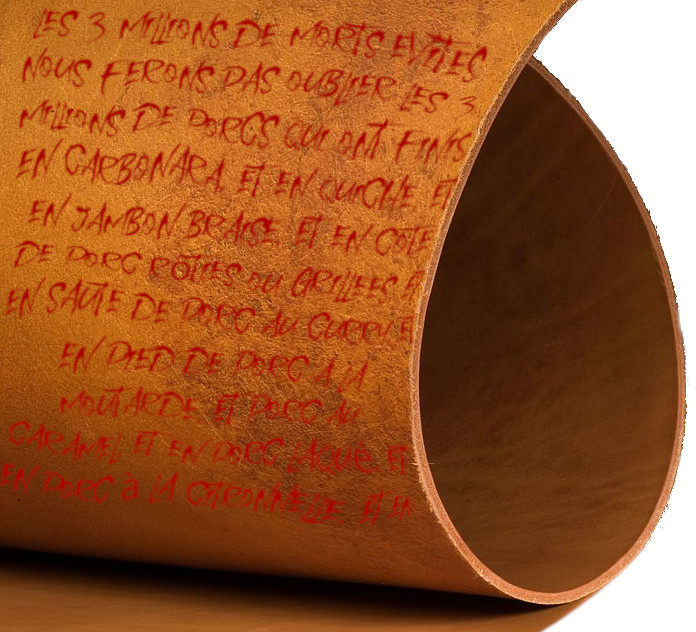 LES 3 MILLIONS DE MORTS EVITES
NOUS FERONS PAS OUBLIER LES 3
MILLIONS DE PORCS QUI ONT FINIS
EN CARBONARA, ET EN QUICHE, ET
EN JAMBON BRAISE, ET EN COTE
DE PORC RÔTIES OU GRILLEES ET
EN SAUTE DE PORC AU CURRY E
EN PIED DE PORC A LA
MOUTARDE, ET PORC AU
CARAMEL ET EN PORC LAQUÉ, ET
EN PORC à LA CITRONNELLE, ET EN